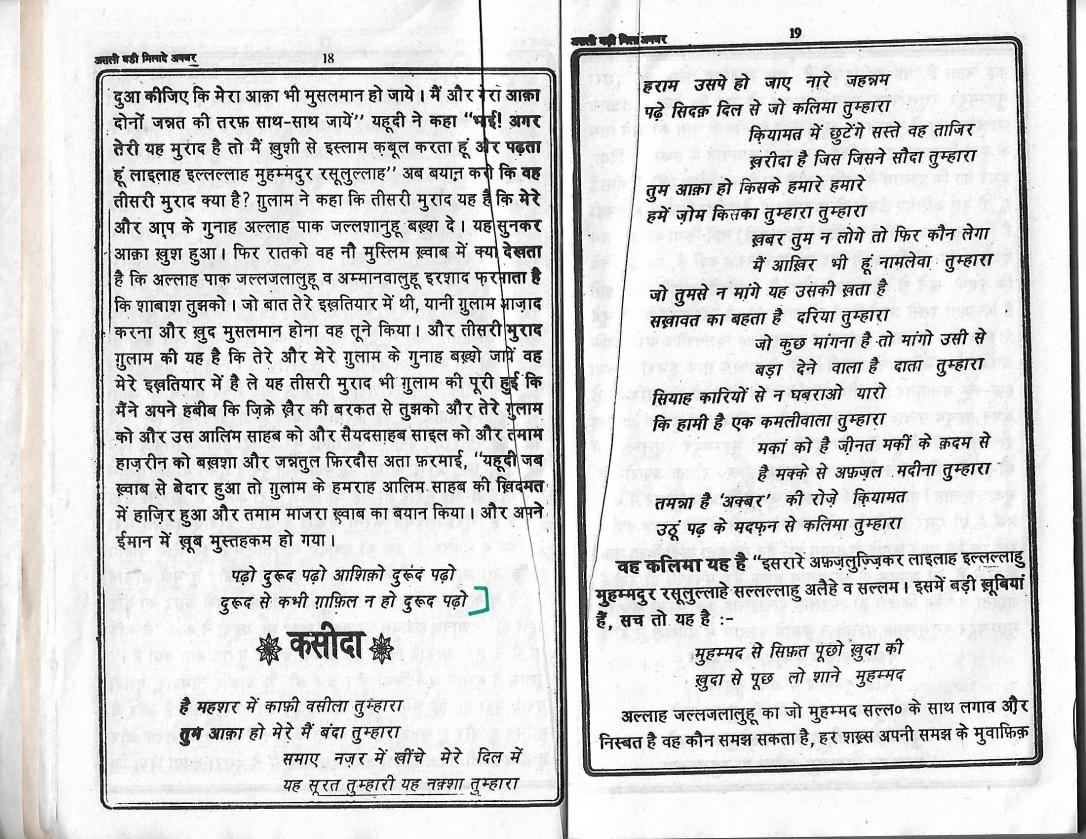 असली बड़ी मिलादे अक्बर
18
दुआ कीजिए कि मेरा आक़ा भी मुसलमान हो जाये। मैं और मेरा आक़ा
दोनों जन्नत की तरफ़ साथ-साथ जायें” यहूदी ने कहा “भाई! अगर
तेरी यह मुराद है तो मैं ख़ुशी से इस्लाम क़बूल करता हूं और पढ़ता
हूं लाइलाह इल्लल्लाह मुहम्मदुर रसूलुल्लाह” अब बयान करो कि वह
तीसरी मुराद क्या है? ग़ुलाम ने कहा कि तीसरी मुराद यह है कि मेरे
और आप के गुनाह अल्लाह पाक जल्लशानुहू बख़्श दे। यह सुनकर
आक़ा ख़ुश हुआ। फिर रातको वह नौ मुस्लिम ख़्वाब में क्या देखता
है कि अल्लाह पाक जल्लजलालुहू व अम्मानवालुहू इरशाद फरमाता है
कि शाबाश तुझको। जो बात तेरे इख़तियार में थी, यानी ग़ुलाम आज़ाद
करना और ख़ुद मुसलमान होना वह तूने किया। और तीसरी मुराद
ग़ुलाम की यह है कि तेरे और मेरे ग़ुलाम के गुनाह बख़्शे जायें वह
मेरे इख़तियार में है ले यह तीसरी मुराद भी ग़ुलाम की पूरी हुई कि
मैंने अपने हबीब कि ज़िक्रे ख़ैर की बरकत से तुझको और तेरे ग़ुलाम
को और उस आलिम साहब को और सैयदसाहब साइल को और तमाम
हाज़रीन को बख़्शा और जन्नतुल फ़िरदौस अता फरमाई, “यहूदी जब
ख़्वाब से बेदार हुआ तो ग़ुलाम के हमराह आलिम साहब की ख़िदमत
में हाज़िर हुआ और तमाम माजरा ख़्वाब का बयान किया। और अपने
ईमान में ख़ूब मुस्तहकम हो गया।
पढ़ो दुरूद पढ़ो आशिक़ो दुरूद पढ़ो
दुरूद से कभी ग़ाफ़िल न हो दुरूद पढ़ो
कसीदा
है महशर में काफ़ी वसीला तुम्हारा
तुम आक़ा हो मेरे मैं बंदा तुम्हारा
समाए नज़र में खींचे मेरे दिल में
यह सूरत तुम्हारी यह नक़्शा तुम्हारा
असली बड़ी मिलादे अक्बर
19
हराम उसपे हो जाए नारे जहन्नम
पढ़े सिदक़ दिल से जो कलिमा तुम्हारा
कियामत में छुटेंगे सस्ते वह ताजिर
ख़रीदा है जिस जिसने सौदा तुम्हारा
तुम आक़ा हो किसके हमारे हमारे
हमें ज़ोम किसका तुम्हारा तुम्हारा
ख़बर तुम न लोगे तो फिर कौन लेगा
मैं आख़िर भी हूं नामलेवा तुम्हारा
जो तुमसे न मांगे यह उसकी ख़ता है
सख़ावत का बहता है दरिया तुम्हारा
जो कुछ मांगना है तो मांगो उसी से
बड़ा देने वाला है दाता तुम्हारा
सियाह कारियों से न घबराओ यारो
कि हामी है एक कमलीवाला तुम्हारा
मकां को है ज़ीनत मकीं के क़दम से
है मक्के से अफ़ज़ल मदीना तुम्हारा
तमन्ना है ‘अक्बर’ की रोज़े क़ियामत
उठूं पढ़ के मदफ़न से कलिमा तुम्हारा
वह कलिमा यह है “इसरारे अफ़ज़लुज़्ज़िकर लाइलाह इल्लल्लाहु
मुहम्मदुर रसूलुल्लाहे सल्लल्लाहु अलैहे व सल्लम। इसमें बड़ी ख़ूबियां
हैं, सच तो यह है :-
मुहम्मद से सिफ़त पूंछो ख़ुदा की
ख़ुदा से पूछ लो शाने मुहम्मद
अल्लाह जल्लजलालुहू का जो मुहम्मद सल्ल० के साथ लगाव और
निस्बत है वह कौन समझ सकता है, हर शख़्स अपनी समझ के मुवाफ़िक़